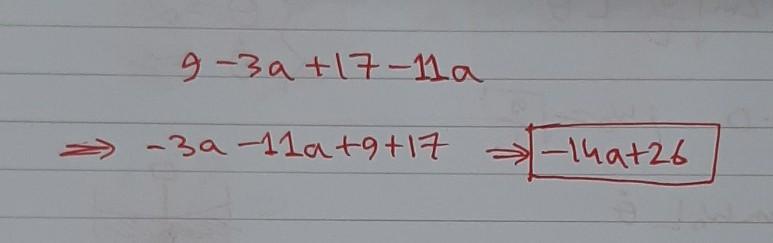 9 - 3a + 17 - 11a
⇒ -3a - 11a + 9 + 17 ⇒ -14a + 26